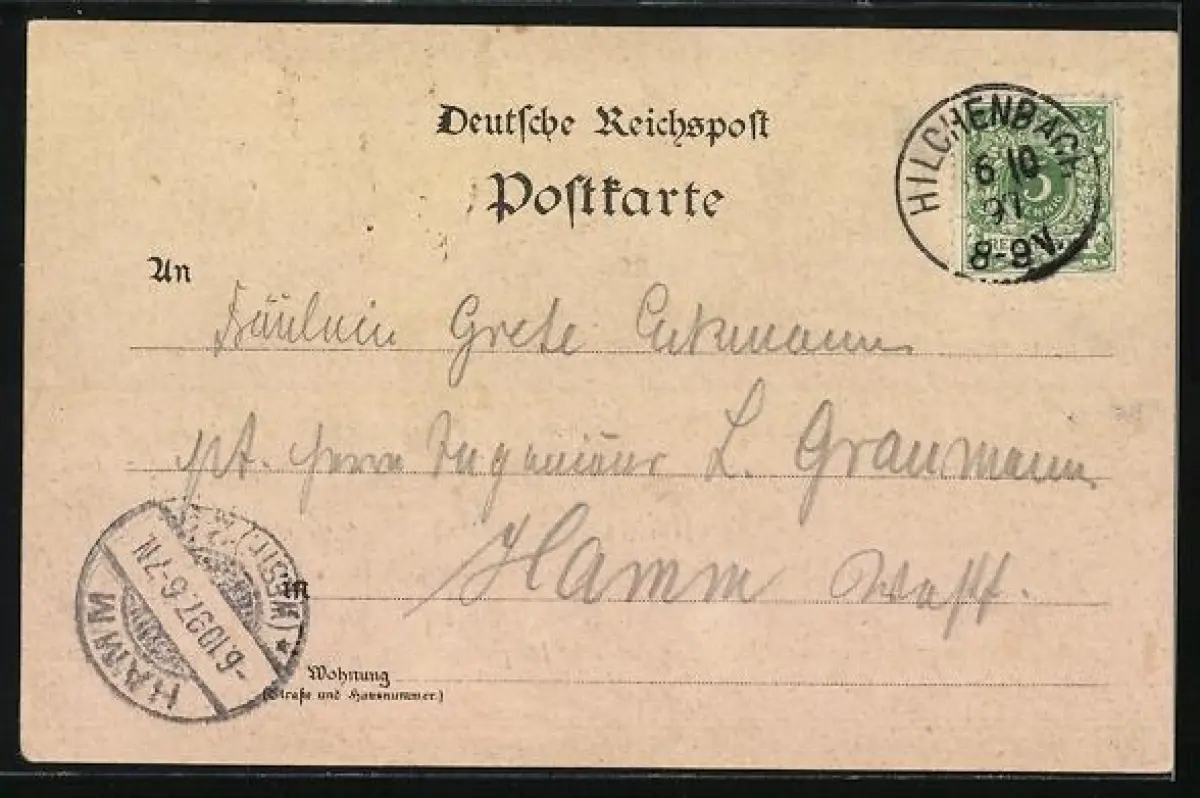 Deutsche Reichspost
Postkarte
HILCHENBACH
6 10
97
8-9N.
5
An
Fräulein Grete Eckmann
Herrn Ingenieur L. Graumann
Hamm Westf.
in
HAMM
6.10.97.6-7N
* (WESTF.)
Wohnung
(Straße und Hausnummer.)